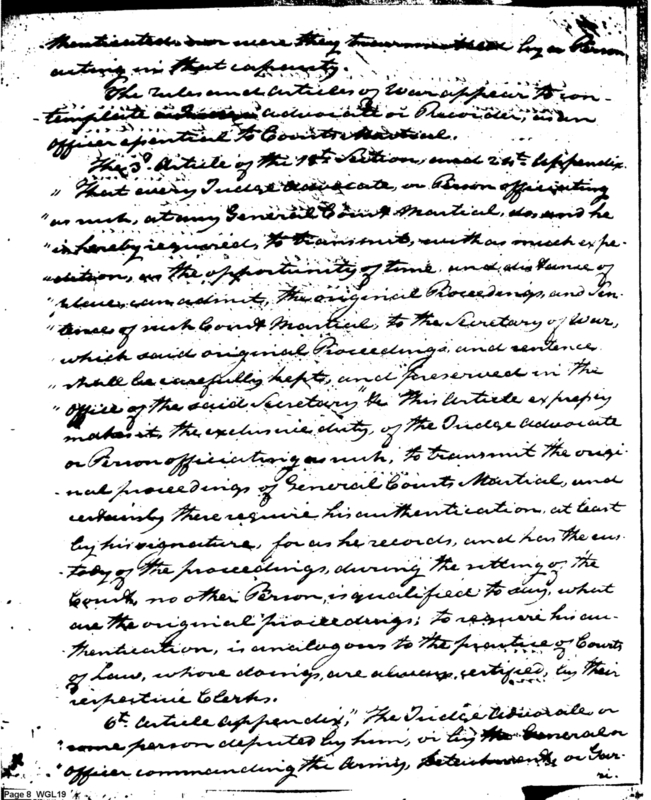 thenticated nor were they by a Person
acting in that capacity.
The rules and articles of War appear to con-
template advocate or Recorder, as an
officer essential to Courts Martial.
The 3d. Article of the 18th. Section, and 24th. Appendix.
" That every Judge advocate, or Person officiating
"as such, at any General Court Martial, do, and he
"is hereby required, to transmit, with as much expe-
"dition, as the opportunity of time and distance of
"place, can admit, the original Proceedings, and Sen-
"tence of such Court Martial, to the Secretary of War,
"which said original Proceedings, and sentence
" shall be carefully kept, and preserved in the
" office of the said Secretary" &c This Article expressly
makes it, the exclusive duty, of the Judge advocate
or Person officiating as such, to transmit the origi-
nal proceedings of General Courts Martial, and
certainly there require his authentication, at least
by his signature, for as he records, and has the cus-
tody of the proceedings, during the sitting of the
Court, no other Person, is qualified to say, what
are the original proceedings; to require his au-
thentication, is analogous to the practice of Courts
of Law, whose doings, are always, certified, by their
respective Clerks.
6th. Article appendix, " The Judge advocate or
" some person deputed by him, or by the General or
" officer commanding the Army, Detachment, or Gar-
ri-
Page 8 WGL19